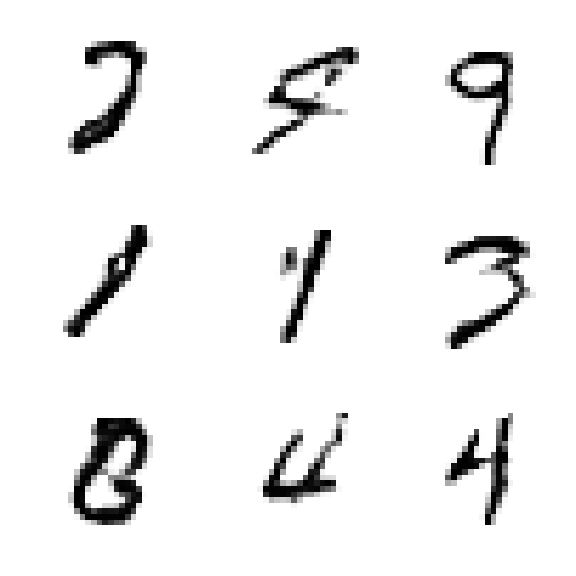 2 5 9
1 1 3
8 4 4